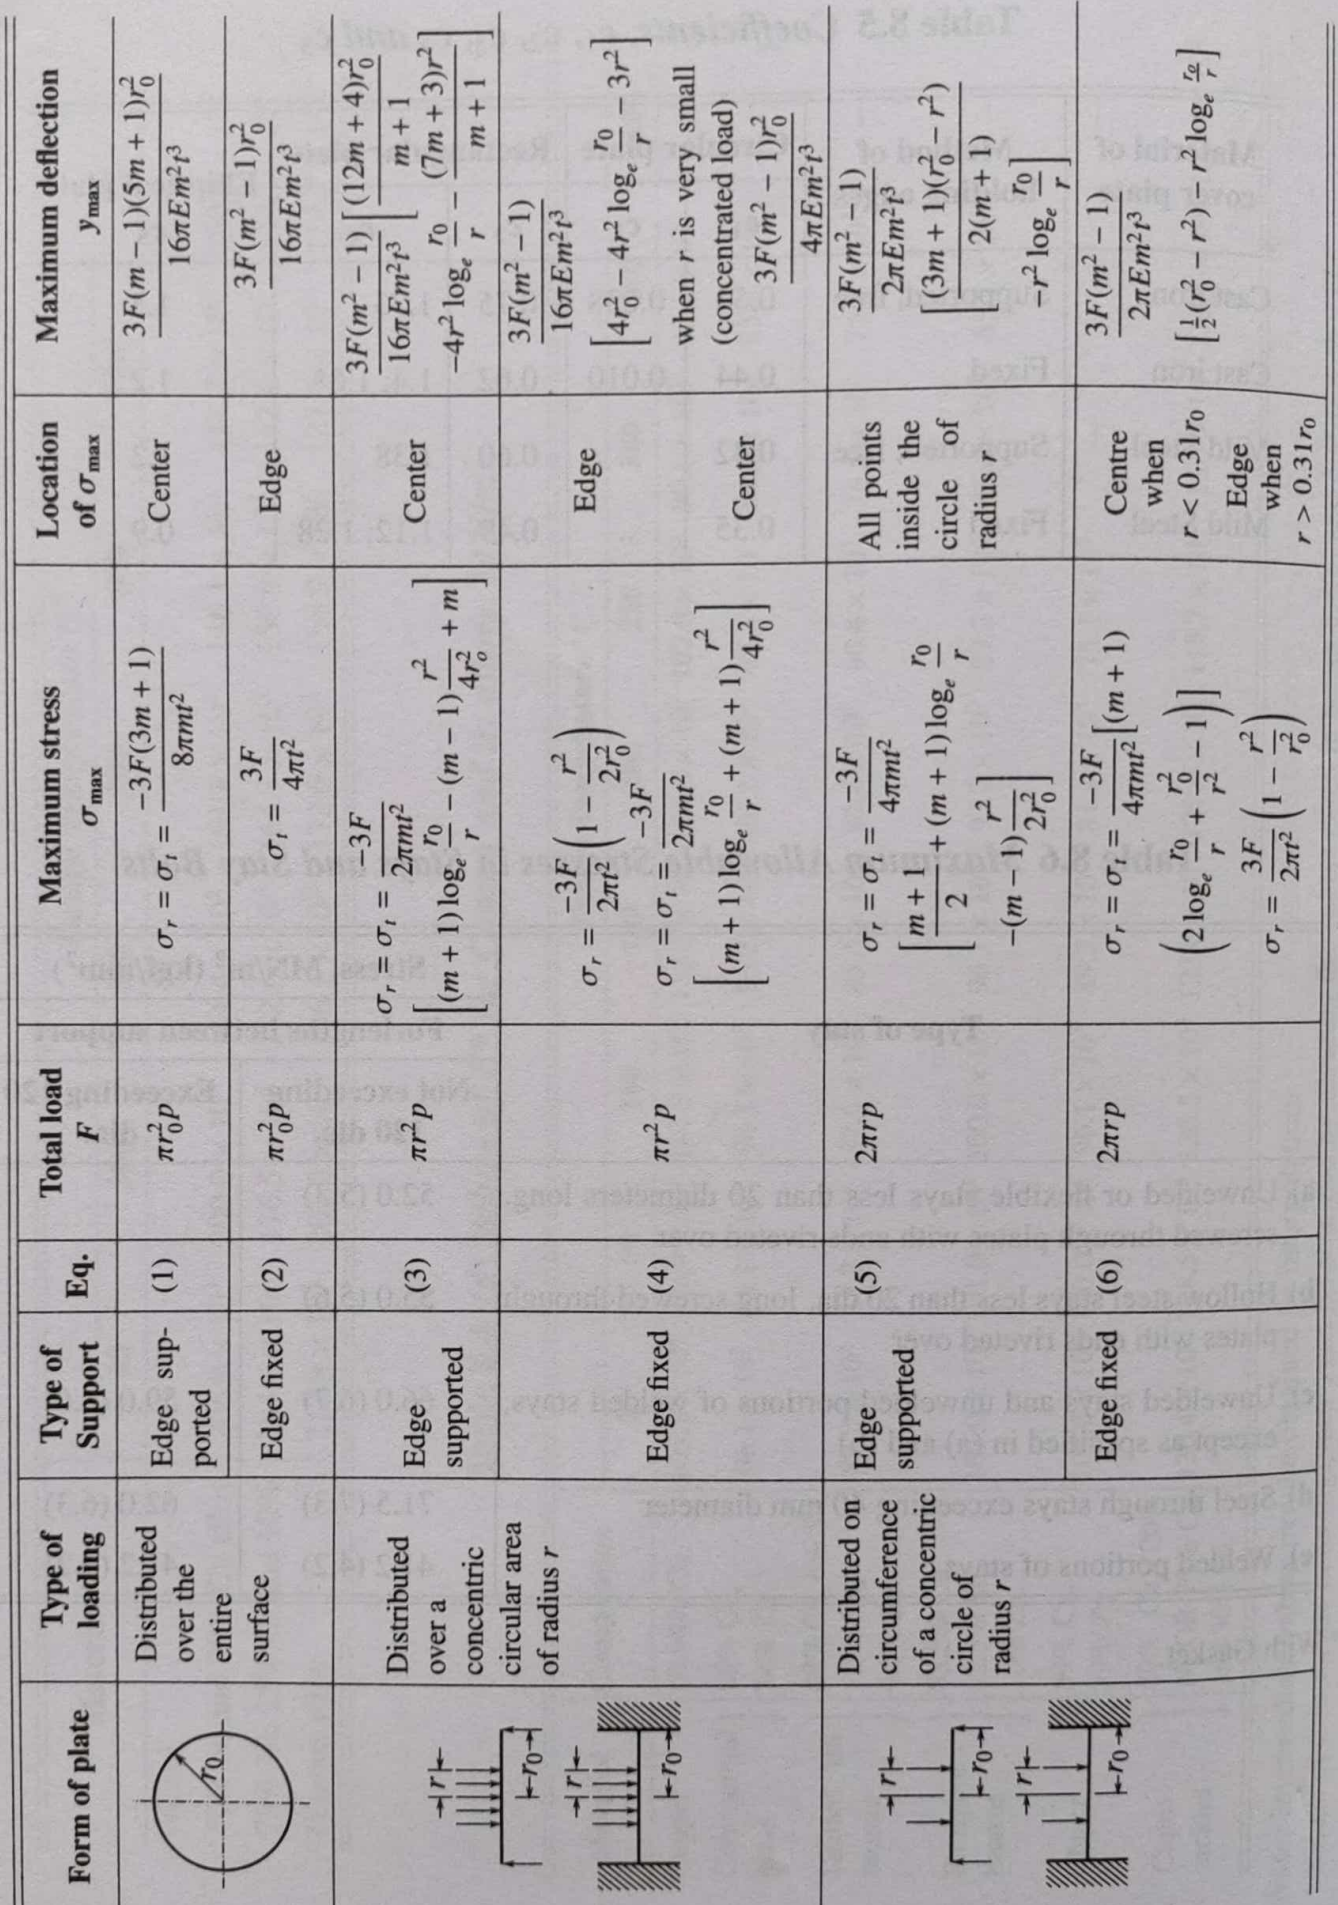 Form of plate
Type of loading
Type of Support
Eq.
Total load F
Maximum stress σ_max
Location of σ_max
Maximum deflection y_max
r₀
Distributed over the entire surface
Edge sup-
ported
(1)
πr₀²p
σ_r = σ_t = −3F(3m + 1) / 8πmt²
Center
3F(m − 1)(5m + 1)r₀² / 16πEm²t³
Edge fixed
(2)
πr₀²p
σ_r = 3F / 4πt²
Edge
3F(m² − 1)r₀² / 16πEm²t³
r
r₀
Distributed over a concentric circular area of radius r
Edge supported
(3)
πr²p
σ_r = σ_t = −3F / 2πmt²
[(m + 1) log_e r₀/r − (m − 1) r²/4r_o² + m]
Center
3F(m² − 1) / 16πEm²t³ [(12m + 4)r₀² / m + 1
−4r² log_e r₀/r − (7m + 3)r² / m + 1]
r
r₀
Edge fixed
(4)
πr²p
σ_r = −3F / 2πt² (1 − r²/2r₀²)
Edge
σ_r = σ_t = −3F / 2πmt²
[(m + 1) log_e r₀/r + (m + 1) r²/4r₀²]
Center
3F(m² − 1) / 16πEm²t³
[4r₀² − 4r² log_e r₀/r − 3r²]
when r is very small
(concentrated load)
3F(m² − 1)r₀² / 4πEm²t³
r
r₀
Distributed on circumference of a concentric circle of radius r
Edge supported
(5)
2πrp
σ_r = σ_t = −3F / 4πmt²
[m + 1 / 2 + (m + 1) log_e r₀/r
−(m − 1) r²/2r₀²]
All points inside the circle of radius r
3F(m² − 1) / 2πEm²t³
[(3m + 1)(r₀² − r²) / 2(m +
−r² log_e r₀/r]
r
r₀
Edge fixed
(6)
2πrp
σ_r = σ_t = −3F / 4πmt² [(m + 1)
(2 log_e r₀/r + r₀²/r² − 1)]
Centre when r < 0.31r₀
σ_r = 3F / 2πt² (1 − r²/r₀²)
Edge when r > 0.31r₀
3F(m² − 1) / 2πEm²t³
[½(r₀² − r²) − r² log_e r₀/r]